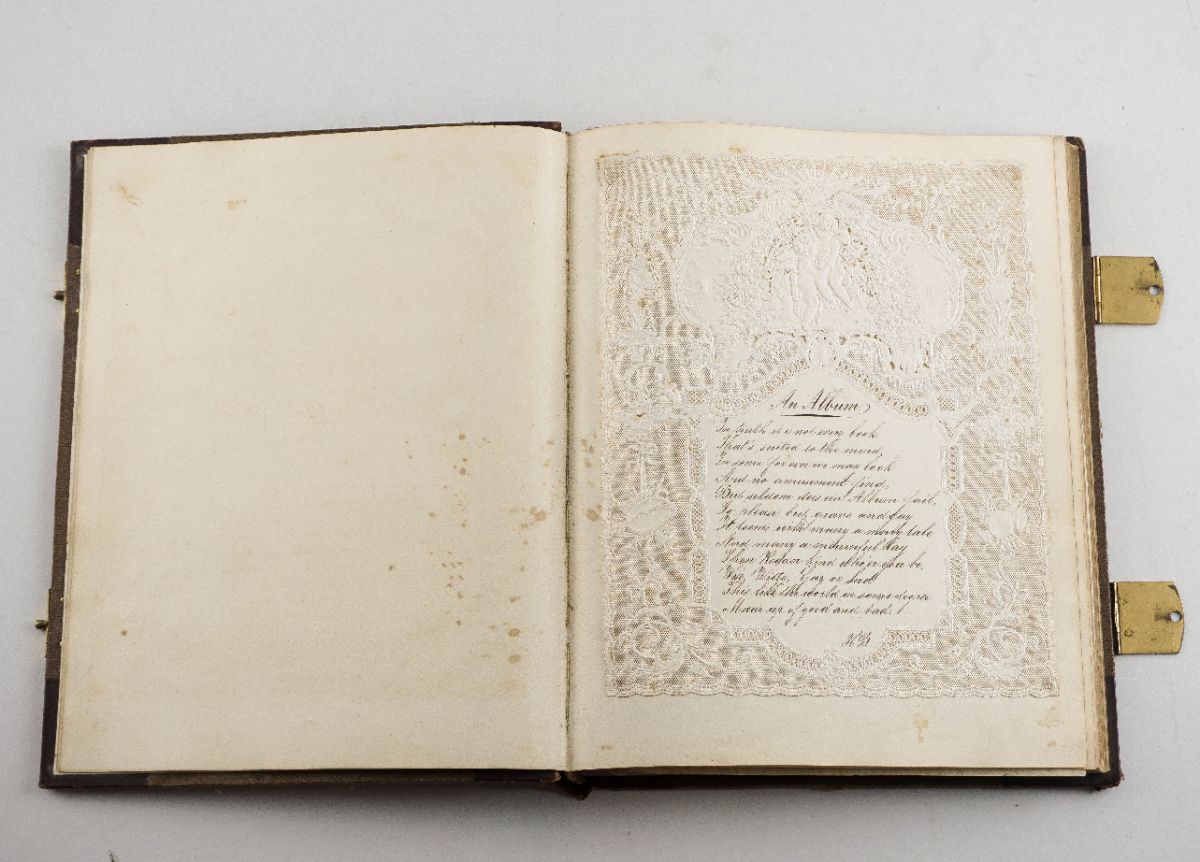 An Album
In truth it is not every book
That's suited to the mind,
In some for ever we may look
And no amusement find.
But seldom does an Album fail,
To please but, grave and gay
It teems with many a merry tale
And many a mournful Lay
Then Reader kind who'er you be.
Wise, Witty, Gay or Sad
This like the world in some degree
Made up of good and bad.